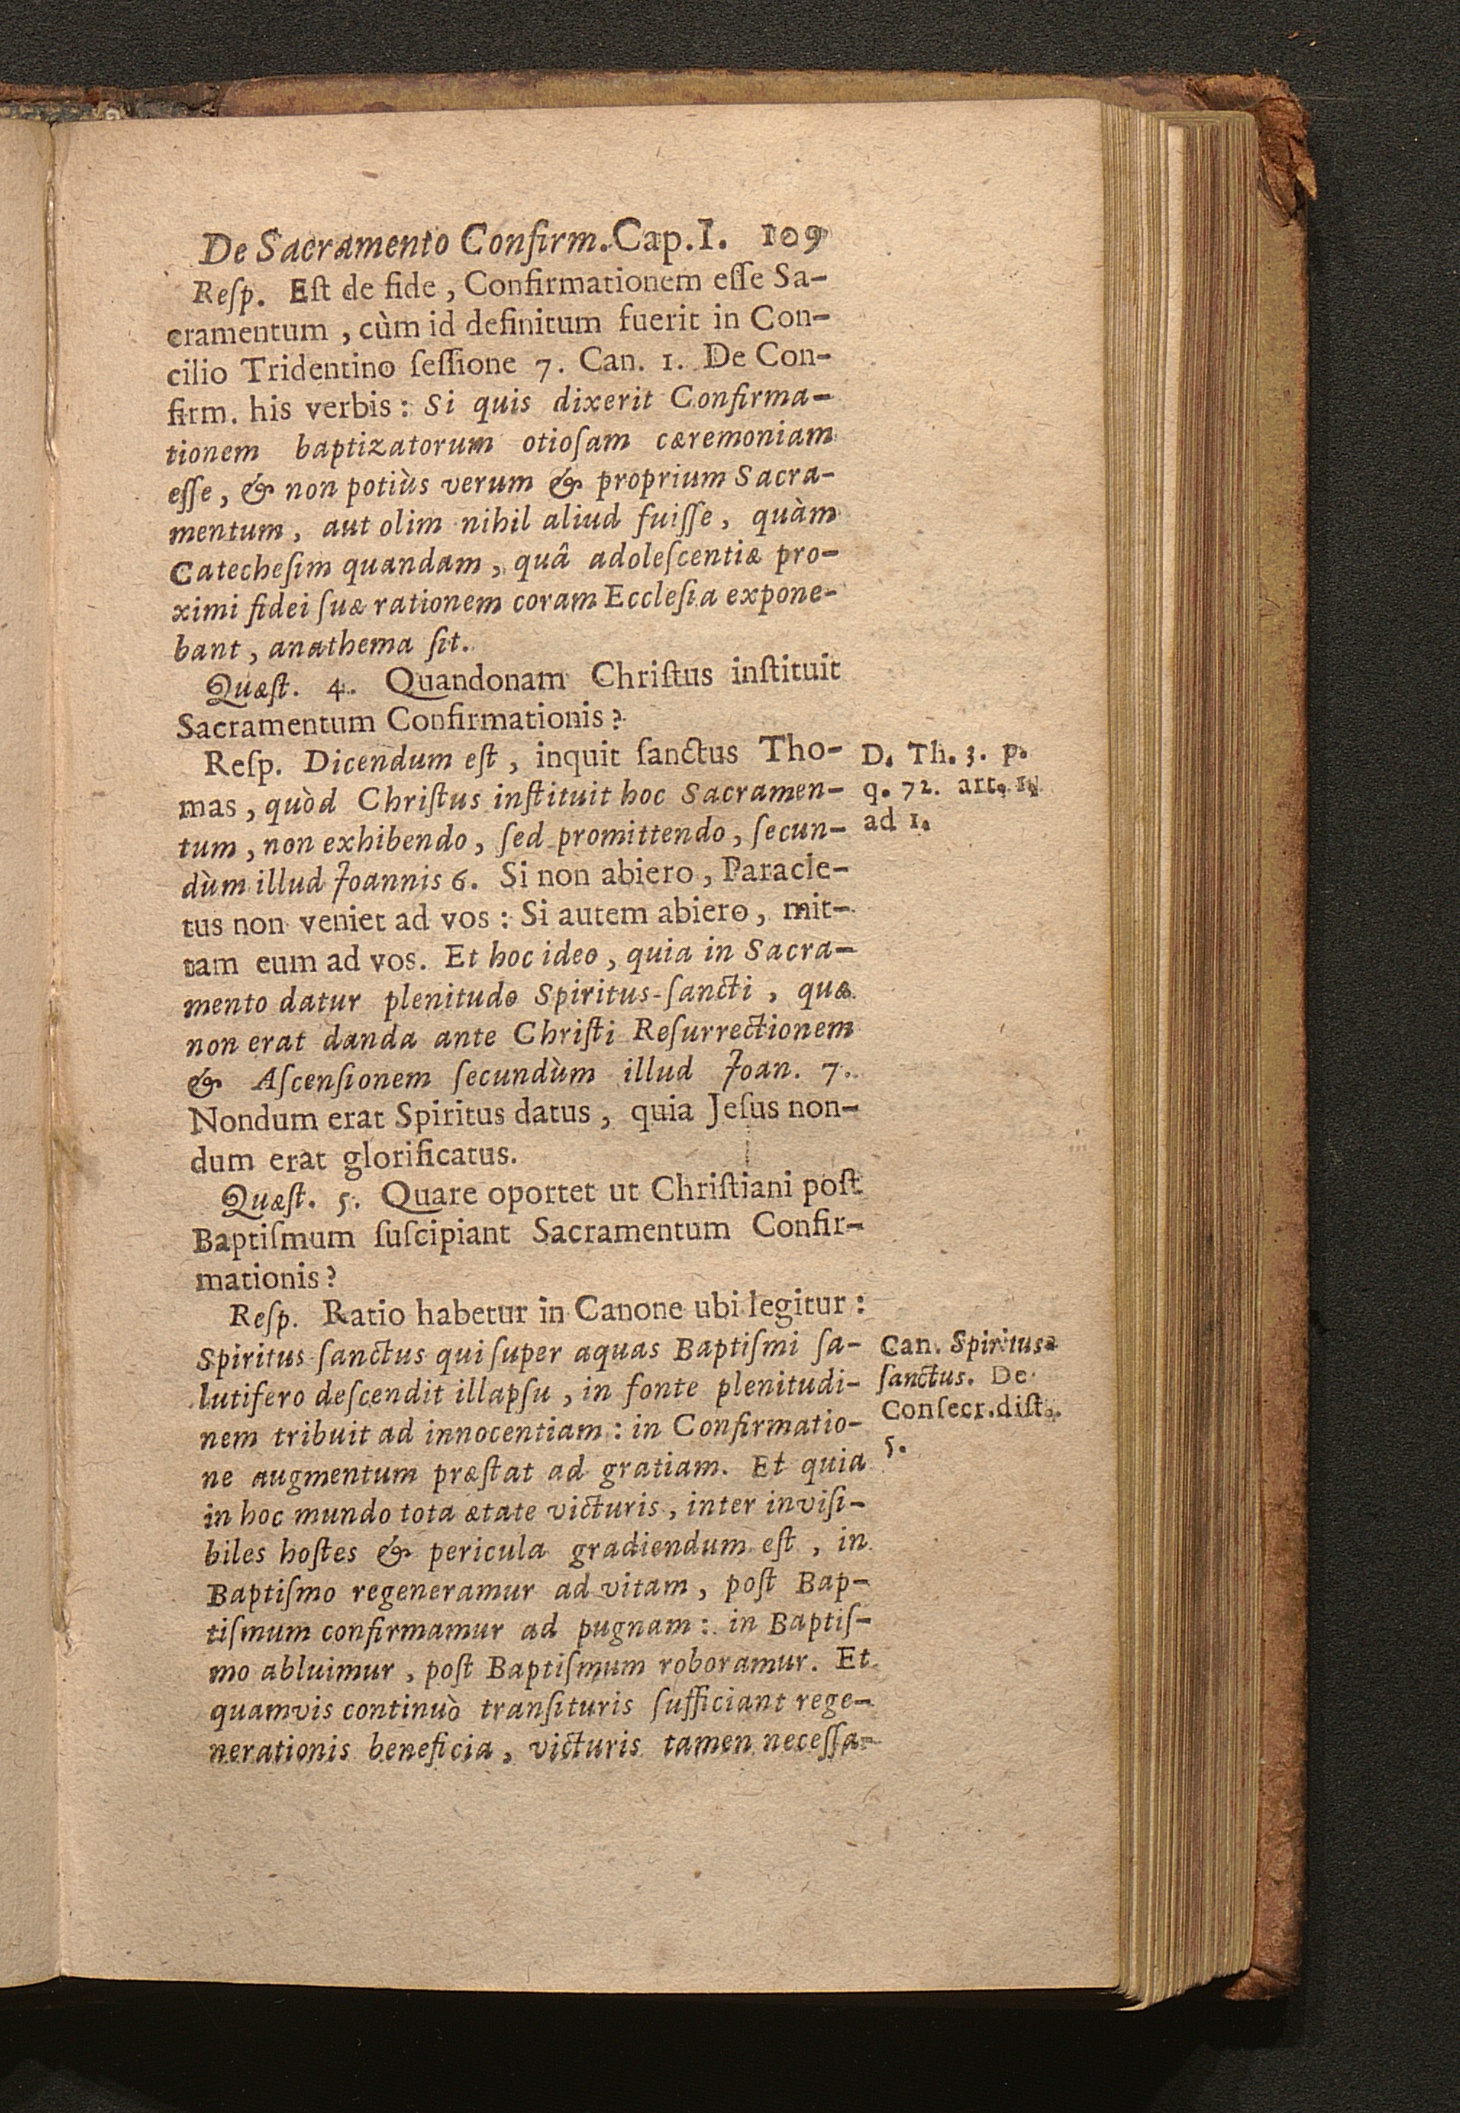 De Sacramento Confirm. Cap. I. 109
Reſp. Eſt de fide, Confirmationem eſſe Sa-
cramentum, cùm id definitum fuerit in Con-
cilio Tridentino ſeſſione 7. Can. 1. De Con-
firm. his verbis: Si quis dixerit Confirma-
tionem baptizatorum otioſam cæremoniam
eſſe, & non potiùs verum & proprium Sacra-
mentum, aut olim nihil aliud fuiſſe, quàm
Catecheſim quandam, quâ adoleſcentiæ pro-
ximi fidei ſuæ rationem coram Eccleſia expone-
bant, anathema ſit.
Quæſt. 4. Quandonam Chriſtus inſtituit
Sacramentum Confirmationis?
Reſp. Dicendum eſt, inquit ſanctus Tho-
mas, quòd Chriſtus inſtituit hoc Sacramen-
tum, non exhibendo, ſed promittendo, ſecun-
dùm illud Joannis 6. Si non abiero, Paracle-
tus non veniet ad vos: Si autem abiero, mit-
tam eum ad vos. Et hoc ideo, quia in Sacra-
mento datur plenitudo Spiritus-ſancti, quæ
non erat danda ante Chriſti Reſurrectionem
& Aſcenſionem ſecundùm illud Joan. 7.
Nondum erat Spiritus datus, quia Jeſus non-
dum erat glorificatus.
D. Th. 3. p.
q. 72. art. 1.
ad 1.
Quæſt. 5. Quare oportet ut Chriſtiani poſt
Baptiſmum ſuſcipiant Sacramentum Confir-
mationis?
Reſp. Ratio habetur in Canone ubi legitur:
Spiritus-ſanctus qui ſuper aquas Baptiſmi ſa-
lutifero deſcendit illapſu, in fonte plenitudi-
nem tribuit ad innocentiam: in Confirmatio-
ne augmentum præſtat ad gratiam. Et quia
in hoc mundo tota ætate victuris, inter inviſi-
biles hoſtes & pericula gradiendum eſt, in
Baptiſmo regeneramur ad vitam, poſt Bap-
tiſmum confirmamur ad pugnam: in Baptiſ-
mo abluimur, poſt Baptiſmum roboramur. Et
quamvis continuò tranſituris ſufficiant rege-
nerationis beneficia, victuris tamen neceſſa-
Can. Spiritus-
ſanctus. De
Conſecr. diſt.
5.